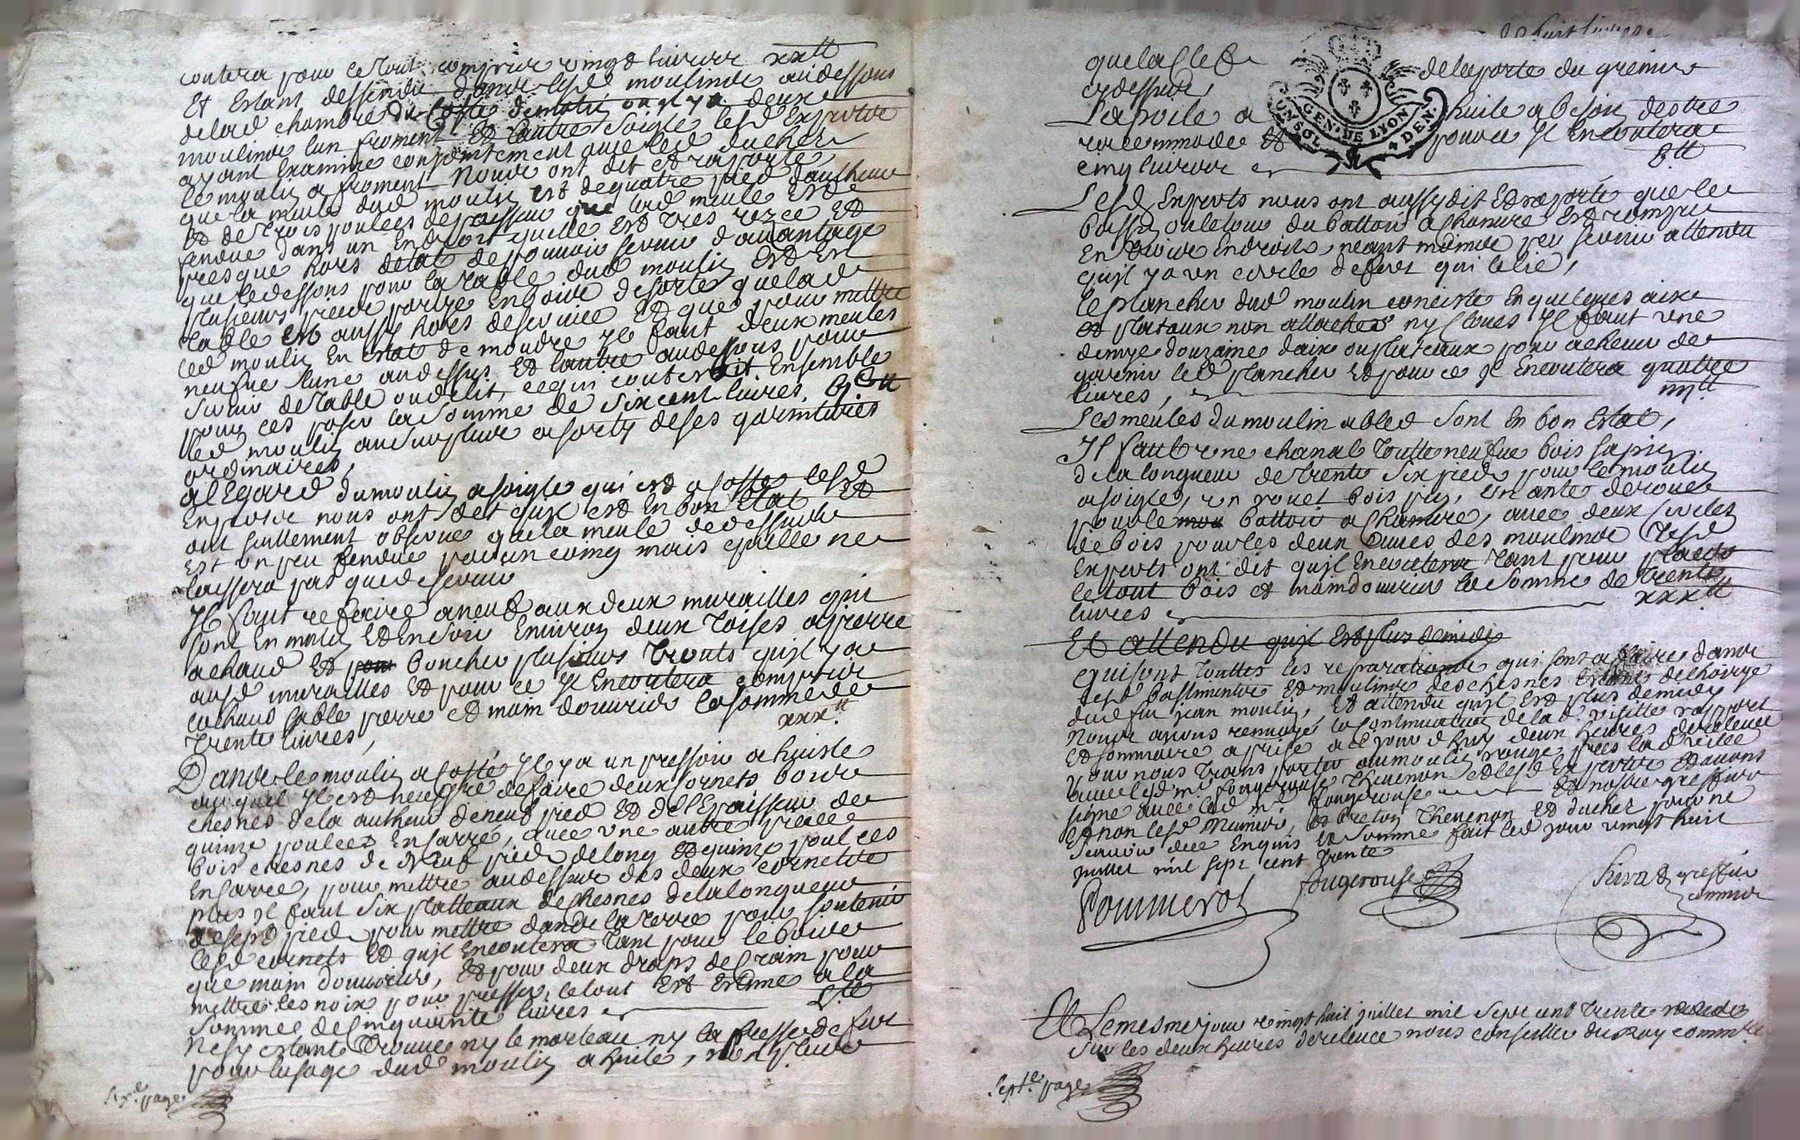 coutera pour le tout compris vingt livres xx^tt
Et Estant dessendu dans lesd moulins au dessous
delad chambre du Costé dematin ou il y a deux
moulins lun froment Et lautre Soigle lesd Experts
ayant Examiné conjointement avec led ducher
le moulin a froment Nous ont dit et raporté
que la meule dud moulin est de quatre pied dautheur
Et de trois poulces depaisseur que lad meule est
fendue dans un Endroit quelle est tres rezee Et
presque hors detat de pouvoir servir davantage
que ledessous pour la table dud moulin Est En
plusieurs pieces partye En boire desorte quelad
table est aussy hors deservice Et que pour mettre
led moulin En Estat de moudre Il faut deux meules
neufve lune au dessus Et lautre au dessous pour
Servir de table ou de lit, cequi couteroit Ensemble
pour les poser la somme de Six cent livres, vj^c tt
led moulin au surplus asorty deses garnitures
ordinaires,
a lEgard du moulin a soigle qui est a Costé lesd
Experts nous ont dit quil est En bon Etat Et
ont seullement observé que la meule de dessus
Est un peu fendue par un coing mais quelle ne
laissera pas que de servir
Il faut refaire a neuf aux deux murailles qui
sont En matin Et En soir Environ deux toises a pierre
a chaud Et boucher plusieurs trouts quil y a
ausd murailles Et pour ce Il En coutera compris
cochaud sable pierre et main douvrier la somme de
trente livres, xxx^tt
Dans le moulin a costé Il y a un pressoir a huisle
auquel Il est necessre de faire deux cornets boire
chesnes de la autheur de neuf pied Et de lEpaisseur de
quinze poulces En carré, avec une autre piece
bois chesnes de Neuf pied de long Et quinze poulces
En carré, pour mettre au dessus des deux cornets
plus Il faut Six platteaux de chesnes de la longueur
de sept pied pour mettre dans la terre pour soutenir
lesd cornets Et quil En coutera tant pour le boire
que main douvrier, Et pour deux draps de Crain pour
mettre les noix pour presser, le tout Est Estimé a la
somme de Cinquante livres L^tt
Nesy estant trouvé ny le marteau ny la presse de fer
pour lusage dud moulin a huile, non plus
six.^e page
que la Clef de la porte du grenier
cy dessus,
La poile a huile a besoin destre
racommodée Et pour ce Il En coutera
cinq livres v^tt
Lesd Experts nous ont aussy dit Et raporté que le
bassy ou le tour du battoir a Chanvre Est rompu
En trois Endroits, neant moins peu servir attendu
quil y a un cercle de fert qui le lie,
le plancher dud moulin consiste En quelques aixe
Et plataux non attachés ny cloués Il faut une
demye douzaine daix ou plateaux pour achever de
garnir led plancher Et pour ce Il En coutera quatre
livres, iiij^tt
Les meules du moulin a bled sont En bon Estat,
Il faut une chanal toutte neufve bois sapin
de la longueur de trente Six pied pour le moulin
a soigle, un rouet bois pin, un antes de rouet
pour le battoir a Chanvre, avec deux Sercles
de bois pour les deux Cuves des moulins Lesd
Experts ont dit quil En coutera tant pour
le tout bois et main douvrier la Somme de trente
livres xxx^tt
Et attendu quil Est plus de midy
qui sont touttes les reparations qui sont a faire dans
lesd bastiments Et moulins des chesnes Estant de lhoirye
dud fut jean moulin, Et attendu quil Est plus de midy
Nous avons renvoyé la continuation de la d. visitte raport
Et sommaire aprise a ce jourdhuy deux heures de relevée
pour nous transporter au moulin rouge, près lad ville
avec led mr fougerouse Thevenon Et lesd Experts Et avons
signé avec led mr fougerouse Et nostre greffier
Et non lesd Munier, breton Thevenon Et ducher pour ne
scavoir dece Enquis Et Sommé fait led jour vingt huit
juillet mil sept cent trente
Pommerol
fougerouse
greffier
commis
GEN. DE LYON
Et Lemesme jour vingt huit juillet mil Sept cent trente
Sur les deux heures de relevée nous conseiller du Roy comm^re
sept.^e page